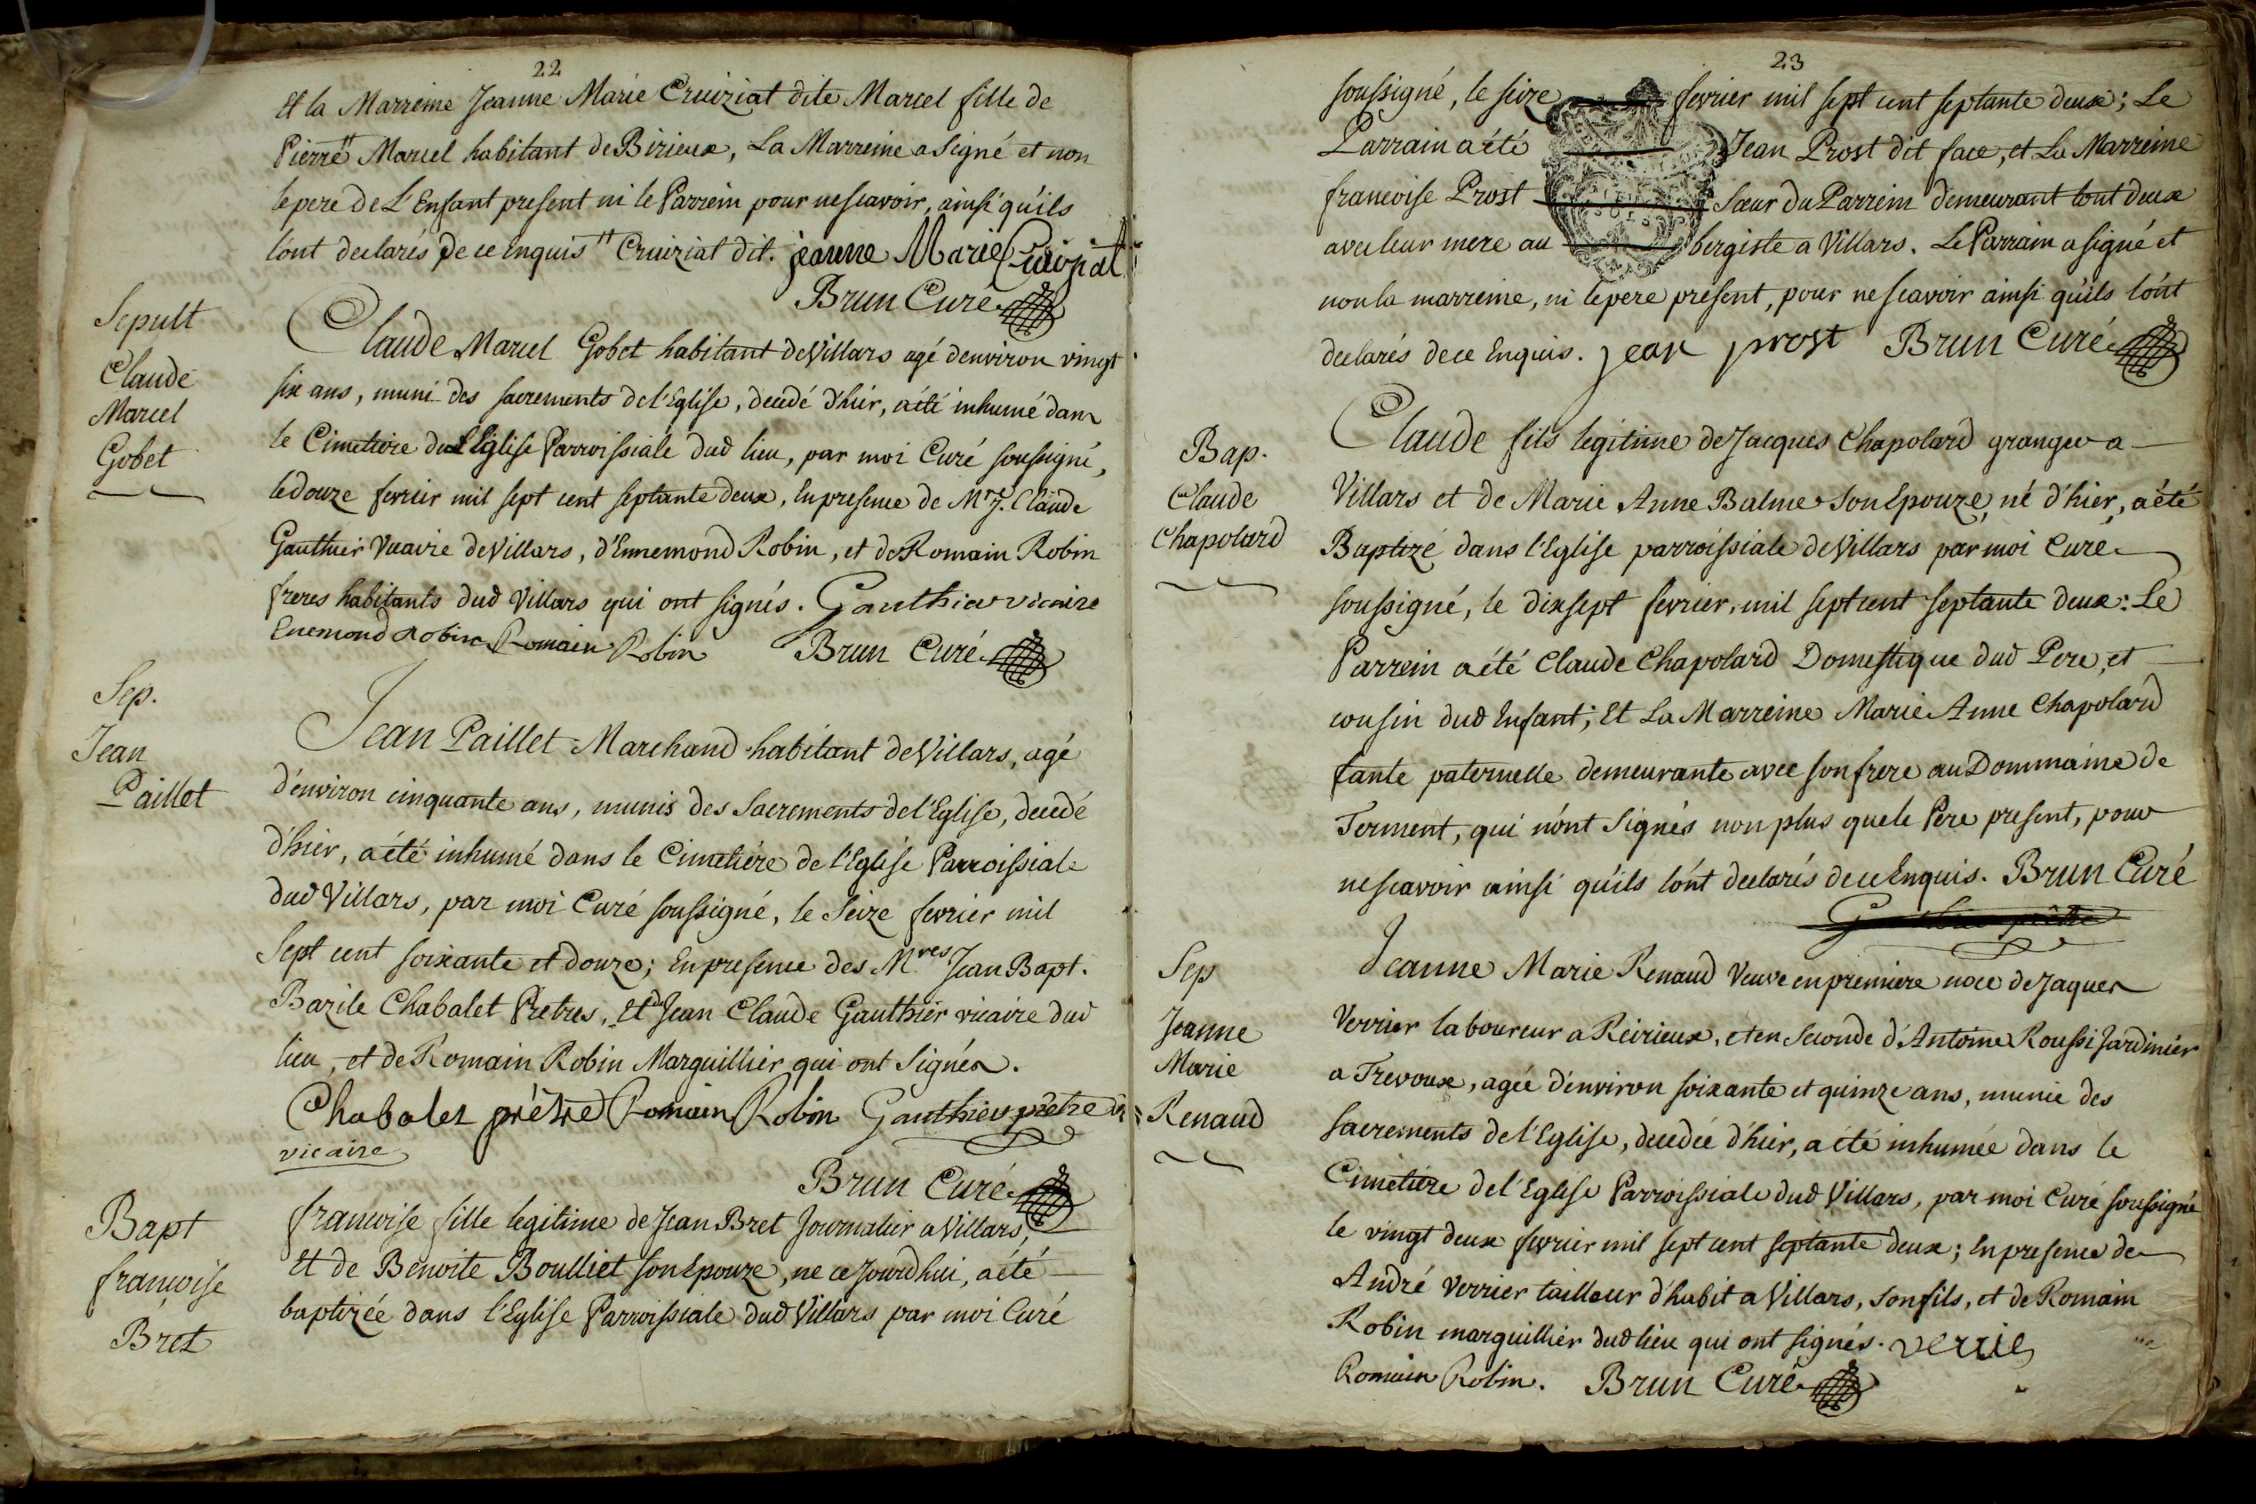 22
Et la Marreine Jeanne Marie Cruiziat dite Marcel fille de
Pierre" Marcel habitant de Birieux, La Marreine a signé et non
le pere de L'Enfant present ni le Parrein pour ne scavoir, ainsi qu'ils
l'ont declarés de ce Enquis " Cruiziat dit. jeanne Marie Cruiziat
Brun Curé
Sepult
Claude
Marcel
Gobet
Claude Marcel Gobet habitant de Villars agé d'environ vingt
six ans, muni des sacrements de l'Eglise, decedé d'hier, a été inhumé dans
le Cimetiere de L'Eglise Parroissiale dud lieu, par moi Curé soussigné,
le douze fevrier mil sept cent septante deux, En presence de Mre J. Claude
Gauthier Vicaire de Villars, d'Ennemond Robin, et de Romain Robin
freres habitants dud Villars qui ont signés. Gauthier vicaire
Enemond Robin Romain Robin Brun Curé
Sep.
Jean
Paillet
Jean Paillet Marchand habitant de Villars, agé
d'environ cinquante ans, munis des Sacrements de l'Eglise, decedé
d'hier, a été inhumé dans le Cimetiére de l'Eglise Parroissiale
dud Villars, par moi Curé soussigné, le Seize fevrier mil
Sept cent soixante et douze; En presence des Mres Jean Bapt.
Bazile Chabalet Pretres, Et Jean Claude Gauthier vicaire dud
lieu, et de Romain Robin Marguillier qui ont Signés.
Chabalet prêtre Romain Robin Gauthier prêtre
vicaire
Brun Curé
Bapt
françoise
Bret
francoise fille legitime de Jean Bret Journalier a Villars,
Et de Benoite Boulliet son Epouze, ne ce Jourd'hui, a été
baptizée dans l'Eglise Parroissiale dud Villars par moi Curé
23
soussigné, le seize fevrier mil sept cent septante deux; Le
Parrain a été Jean Prost dit face, et La Marreine
francoise Prost Sœur du Parrein demeurant tout deux
avec leur mere au bergiste a Villars. Le Parrain a signé et
non la marreine, ni le pere present, pour ne scavoir ainsi qu'ils l'ont
declarés de ce Enquis. jean prost Brun Curé
Bap.
Claude
Chapolard
Claude fils legitime de Jacques Chapolard granger a
Villars et de Marie Anne Balme son Epouze, né d'hier, a été
Baptizé dans l'Eglise parroissiale de Villars par moi Curé
soussigné, le dixsept fevrier, mil sept cent septante deux: Le
Parrein a été Claude Chapolard Domestique dud Pere, et
cousin dud Enfant; Et La Marreine Marie Anne Chapolard
tante paternelle demeurante avec son frere au Dommaine de
Terment, qui n'ont Signés non plus que le Pere present, pour
ne scavoir ainsi qu'ils l'ont declarés de ce Enquis. Brun Curé
Sep
Jeanne
Marie
Renaud
Jeanne Marie Renaud Veuve en premiere noce de Jaques
Verrier laboureur a Reirieux, et en Seconde d'Antoine Roussi Jardinier
a Trevoux, agée d'environ soixante et quinze ans, munie des
sacrements de l'Eglise, decedée d'hier, a été inhumée dans le
Cimetiére de l'Eglise Parroissiale dud Villars, par moi Curé soussigné
le vingt deux fevrier mil sept cent septante deux; En presence de
André Verrier tailleur d'habit a Villars, son fils, et de Romain
Robin marguillier dud lieu qui ont signés. verrie
Romain Robin. Brun Curé